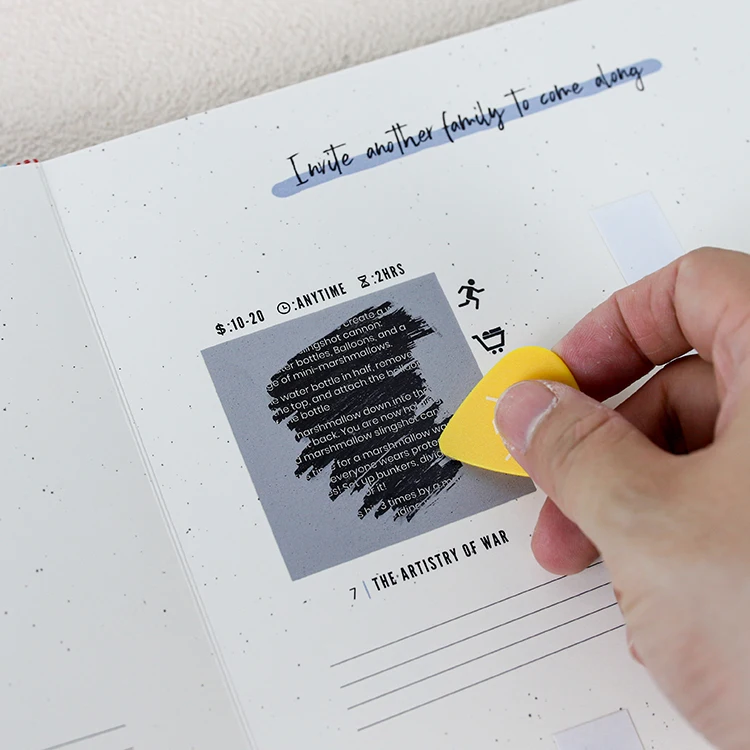 Invite another family to come along
$:10-20 :ANYTIME :2HRS
create a
ngshot cannon:
bottles, Balloons, and a
e of mini-marshmallows.
water bottle in half, remove
top, and attach the
bottle
marshmallow down into
back. You are now
marshmallow slingshot
for a marshmallow
everyone wears
Set up bunkers,
of it!
3 times by a
7 | THE ARTISTRY OF WAR